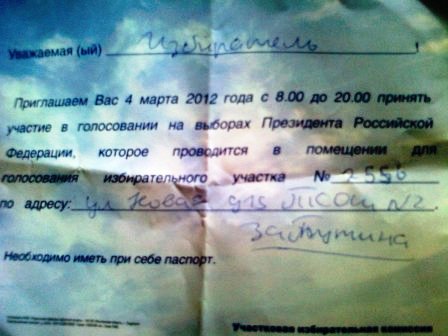 Уважаемая (ый) Избиратель !
Приглашаем Вас 4 марта 2012 года с 8.00 до 20.00 принять
участие в голосовании на выборах Президента Российской
Федерации, которое проводится в помещении для
голосования избирательного участка № 2556
по адресу: ул Новая д15 ТСОШ N2.
За Путина
Необходимо иметь при себе паспорт.
Участковая избирательная комиссия